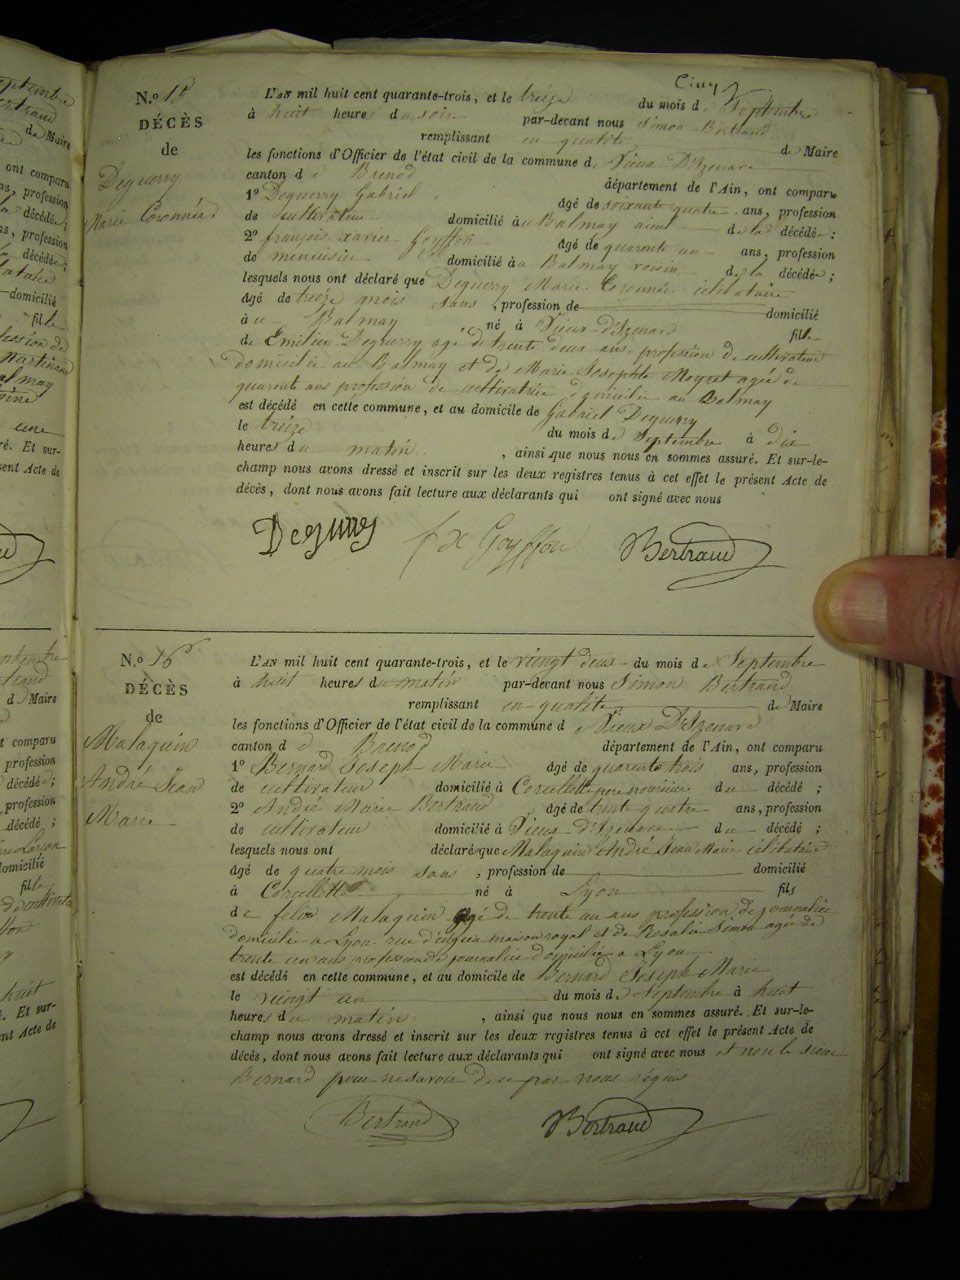 Cinq
N.º 15
DÉCÈS
de
Deguerry
Marie Coronnée
L'AN mil huit cent quarante-trois, et le treize du mois de Septembre
à huit heures du soir par-devant nous Simon Bertrand
remplissant en qualité de Maire
les fonctions d'Officier de l'état civil de la commune de Vieux D'Izenave
canton de Brenod département de l'Ain, ont comparu
1º Deguerry Gabriel âgé de soixante quatre ans, profession
de cultivateur domicilié au Balmay aieul de la décédée ;
2º françois xavier Goyffon âgé de quarente un ans, profession
de menuisier domicilié au Balmay voisin de la décédée ;
lesquels nous ont déclaré que Deguerry Marie Coronnée célibataire
âgé de treize mois sans , profession de domicilié
à au Balmay , né à Vieux-d'Izenave fille
de Emilien Deguerry agé de trente deux ans, profession de cultivateur
domicilié au Balmay et de Marie Josephte Moyret agée de
quarente ans profession de cultivatrice domicilié au Balmay
est décédé en cette commune, et au domicile de Gabriel Deguerry
le treize du mois de Septembre à dix
heures du matin , ainsi que nous nous en sommes assuré. Et sur-le-
champ nous avons dressé et inscrit sur les deux registres tenus à cet effet le présent Acte de
décès, dont nous avons fait lecture aux déclarants qui ont signé avec nous
Deguerry fx Goyffon Bertrand
N.º 16
DÉCÈS
de
Malaquin
André Jean
Marie
L'AN mil huit cent quarante-trois, et le vingt deux du mois de Septembre
à huit heures du matin par-devant nous Simon Bertrand
remplissant en qualité de Maire
les fonctions d'Officier de l'état civil de la commune de Vieux D'Izenave
canton de Brenod département de l'Ain, ont comparu
1º Bernard Joseph Marie âgé de quarente trois ans, profession
de cultivateur domicilié à Corcellette pere nouricier du décédé ;
2º André Marie Bertrand âgé de vingt quatre ans, profession
de cultivateur domicilié à Vieux-d'Izenave du décédé ;
lesquels nous ont déclaré que Malaquin André Jean Marie célibataire
âgé de quatre mois sans , profession de domicilié
à Corcellette né à Lyon fils
de felix Malaquin agé de trente un ans profession de journalier
domicilié a Lyon rue d'enguien maison royal et de Rosalie Simon agée de
trente un ans profession de journaliere domiciliée a Lyon
est décédé en cette commune, et au domicile de Bernard Joseph Marie
le vingt un du mois de Septembre à huit
heures du matin , ainsi que nous nous en sommes assuré. Et sur-le-
champ nous avons dressé et inscrit sur les deux registres tenus à cet effet le présent Acte de
décès, dont nous avons fait lecture aux déclarants qui ont signé avec nous et non le sieur
Bernard pour ne savoir de ce par nous réquis
Bertrand Bertrand